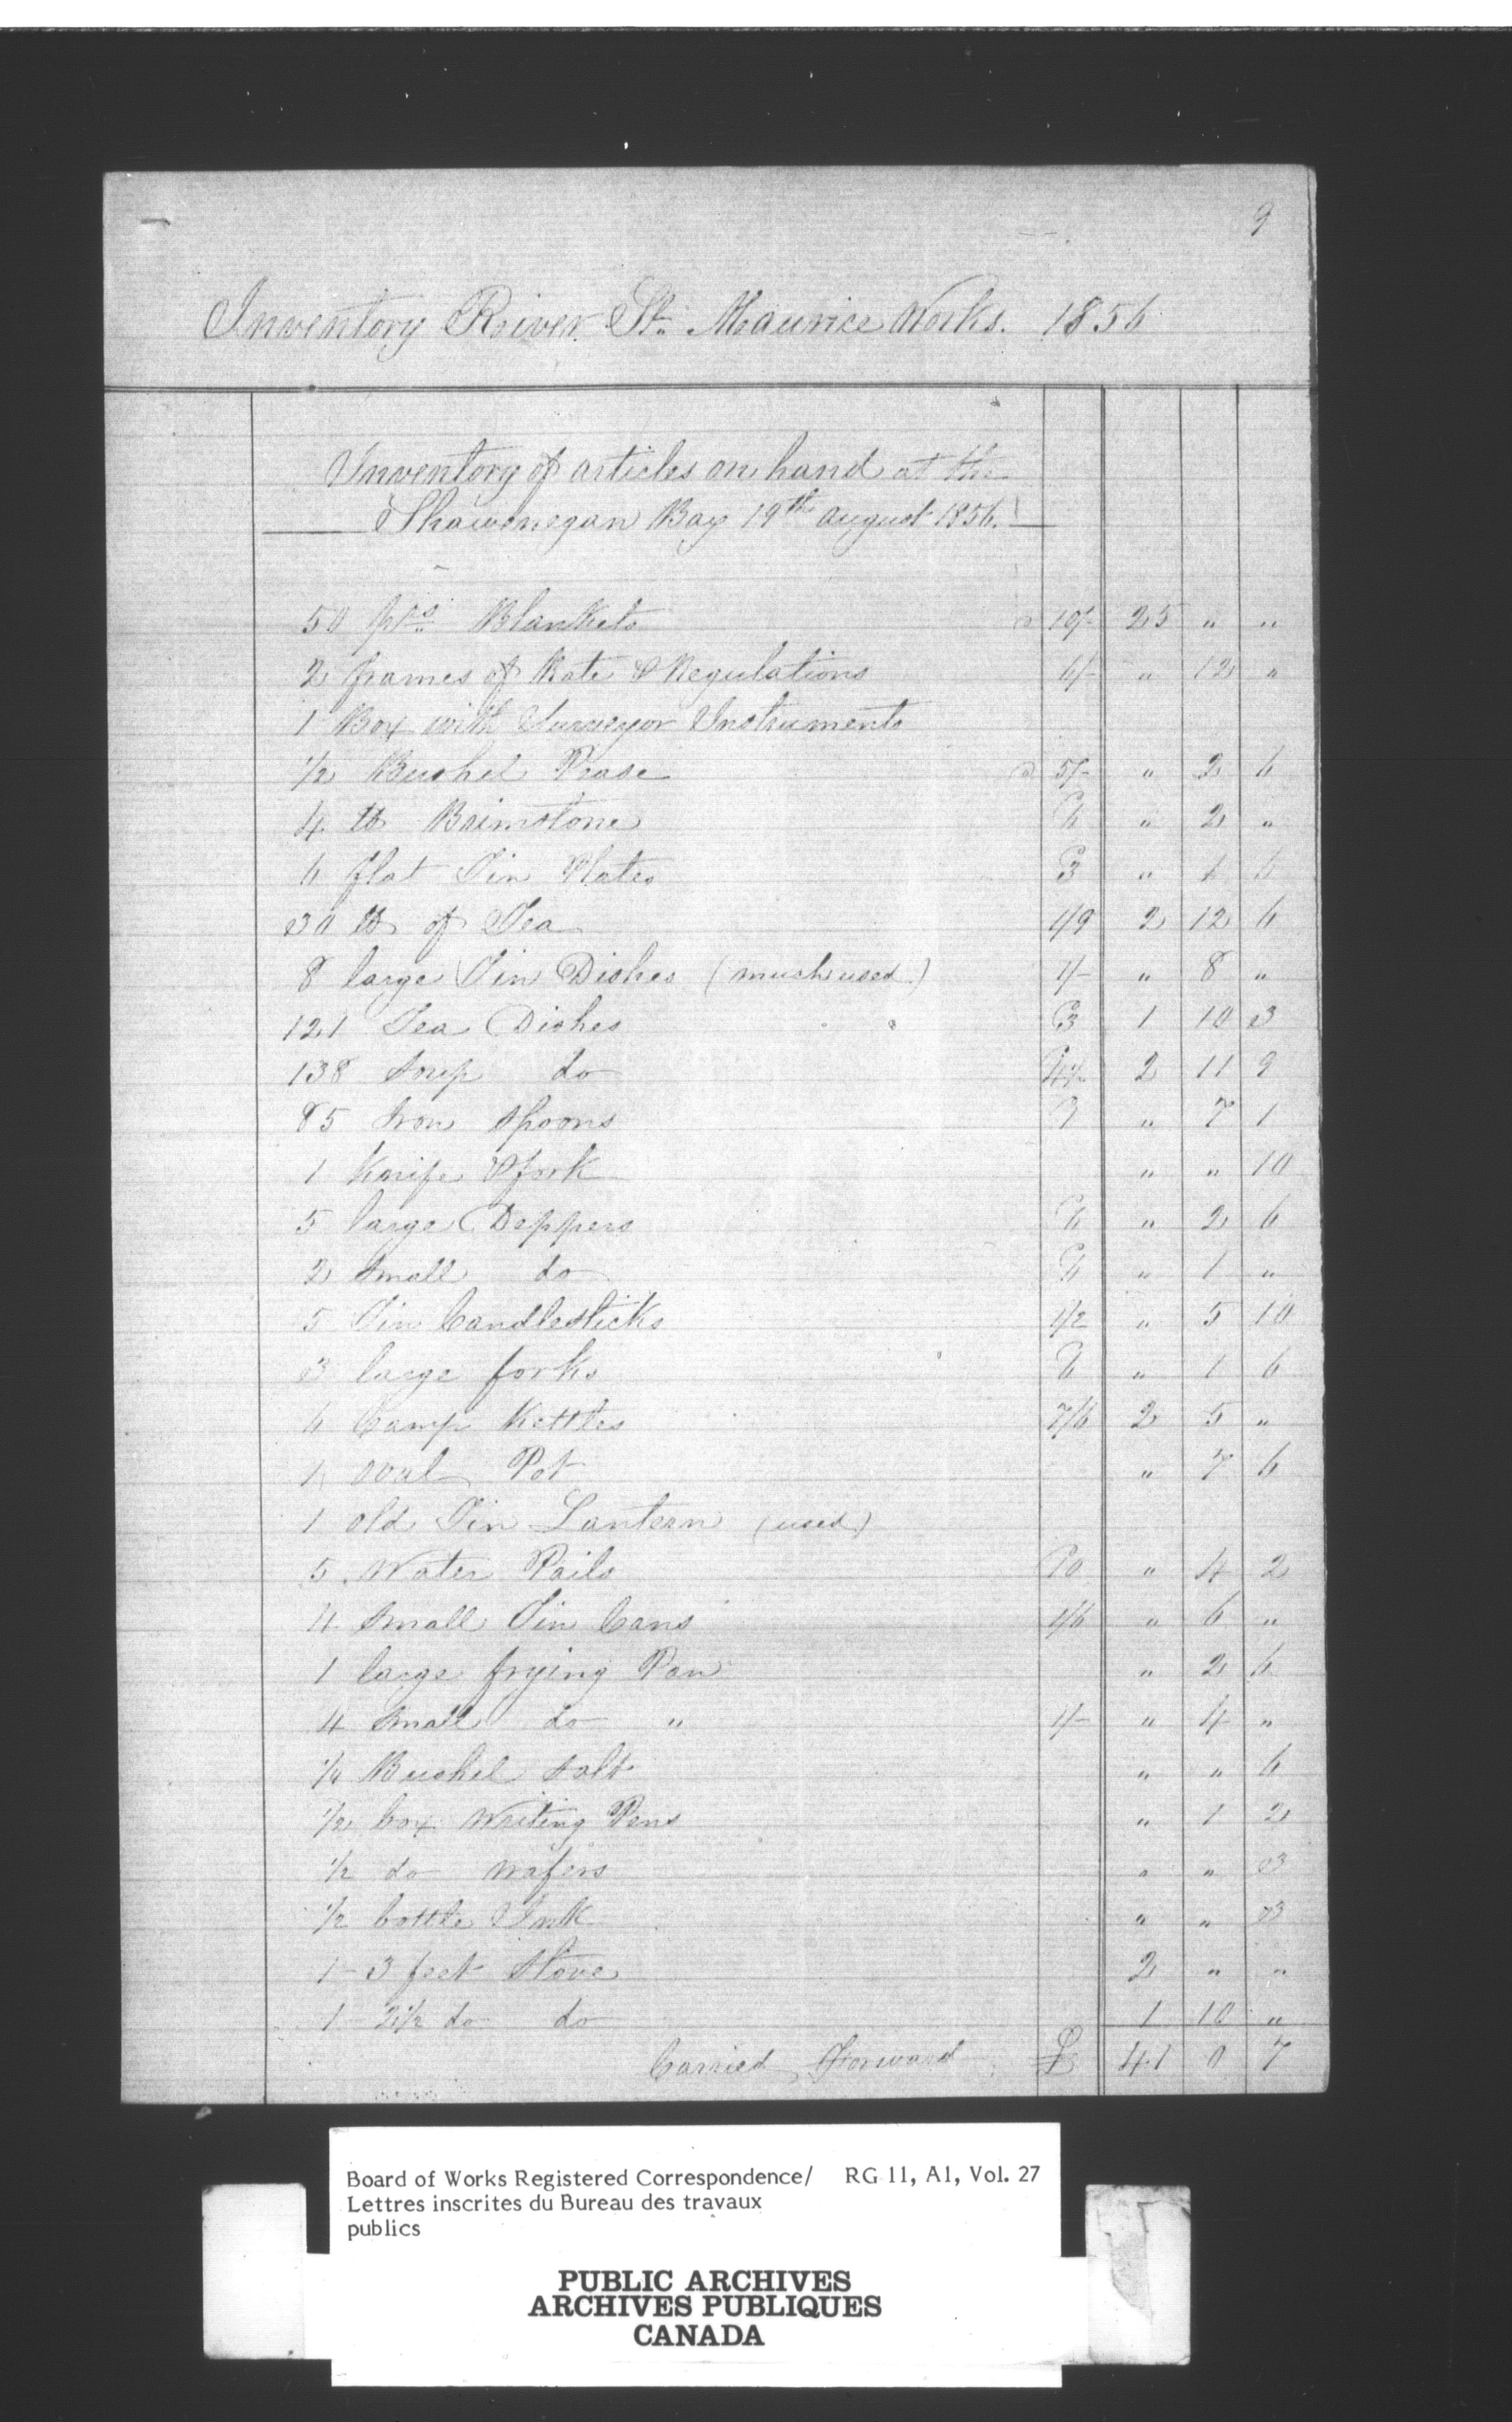 9
Inventory River St. Maurice Works. 1856
Inventory of articles on hand at the
Shawenegan Bay 19th august 1856.
50 prs Blankets @ 10/- 25 " "
2 frames of Rate & Regulations 6/- " 12 "
1 Box with Surveyor Instruments
1/2 Bushel Pease @ 5/- " 2 6
4 lb Brimstone 6 " 2 "
6 flat Tin Plates 3 " 1 6
30 lb of Tea 1/9 2 12 6
8 large Tin Dishes (much used) 1/- " 8 "
121 Tea Dishes 3 1 10 3
138 Soup do 4½ 2 11 9
85 Iron Spoons 1 " 7 1
1 Knife & fork " " 10
5 large Deppers 6 " 2 6
2 small do 6 " 1 "
5 Tin Candlesticks 1/2 " 5 10
3 large forks 6 " 1 6
6 Camp Kettles 7/6 2 5 "
1 oval Pot " 7 6
1 old Tin Lantern (used)
5 Water Pails 10 " 4 2
4 small Tin Cans 1/6 " 6 "
1 large frying Pan " 2 6
4 small do " 1/- " 4 "
Bushel salt " " 6
1/2 box Writing Pens " 1 2
1/2 do Wafers " " 3
1/2 bottle Ink " " 3
1 - 3 feet Stove 2 " "
1 2½ do do 1 10 "
Carried Forward £ 41 0 7
Board of Works Registered Correspondence/ RG 11, A1, Vol. 27
Lettres inscrites du Bureau des travaux
publics
PUBLIC ARCHIVES
ARCHIVES PUBLIQUES
CANADA